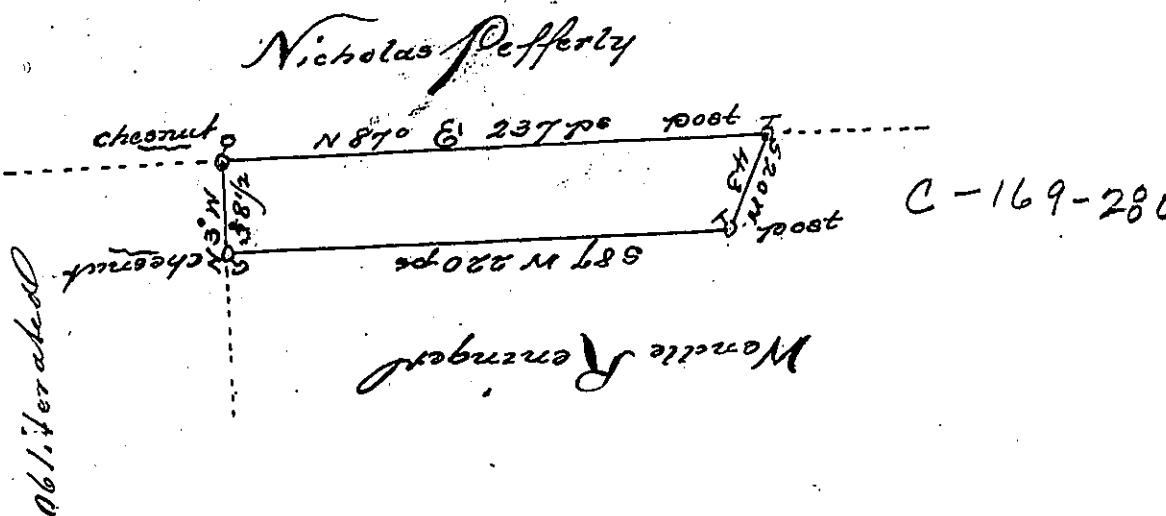 Nicholas Pefferly
chesnut
N 87° E 237 ps
post
S 20 W
43
post
C-169-28
N 3° W
chesnut
S 87 W 220 ps
Wendle Reninger
obliterated